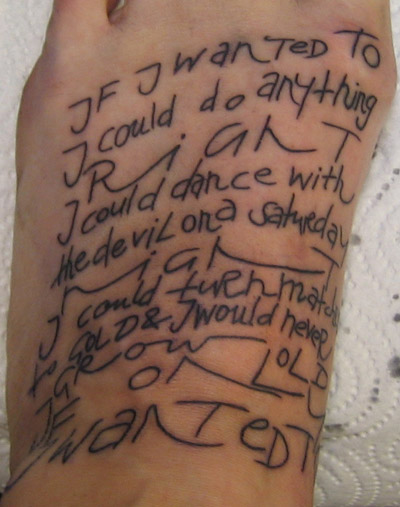 IF I wanTED TO
I could do anything
RighT
I could dance with
the devil on a saturday
night
I could turn matches
to GOLD & I would never
GROW OLD
ONLY
IF I
wanTED TO